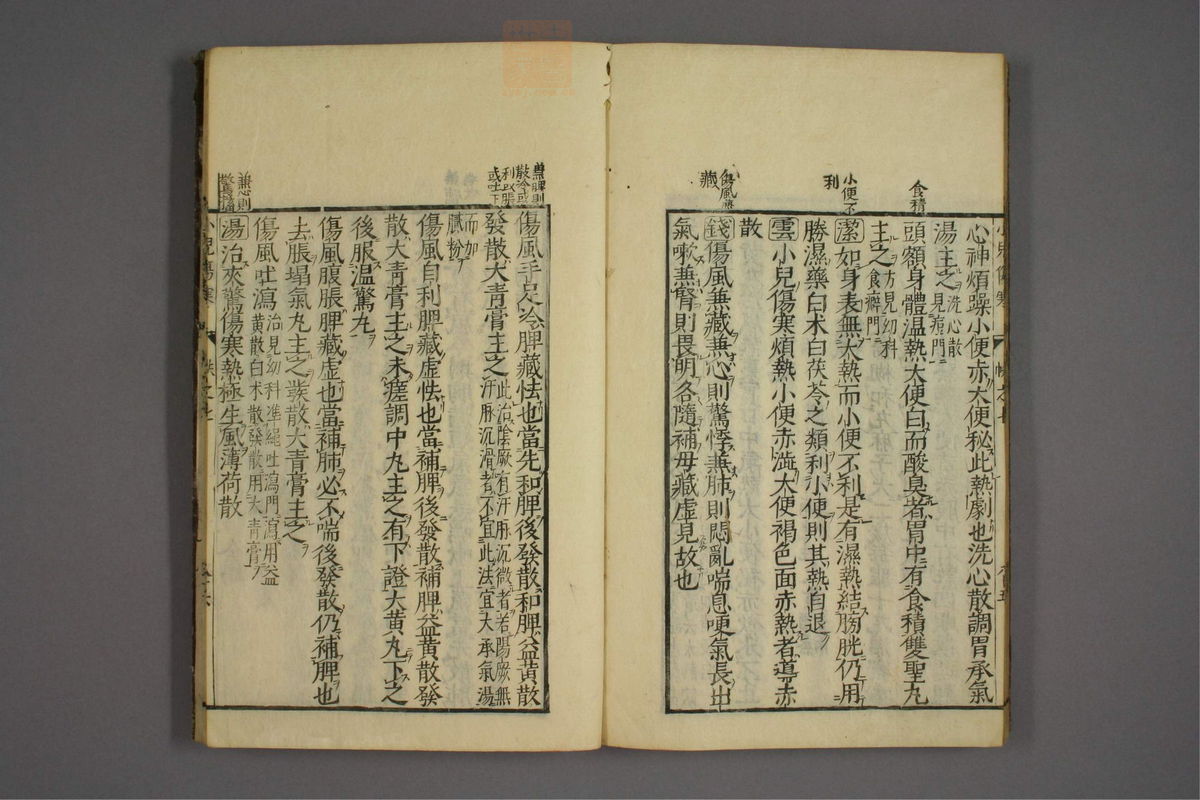 心神煩躁小便赤大便秘此熱劇也洗心散調胃承氣
湯主之洗心散見瘧門
食積
頭額身體溫熱大便白而酸臭者胃中有食積雙聖丸
主之方見幼科食癖門
小便不利
潔如身表無大熱而小便不利是有濕熱結膀胱仍用
勝濕藥白朮白茯苓之類利小便則其熱自退
雲小兒傷寒煩熱小便赤澁大便褐色面赤熱者導赤
散
傷風兼藏
錢傷風兼藏兼心則驚悸兼肺則悶亂喘息哽氣長出
氣嗽兼腎則畏明各隨補母藏虛見故也
兼脾則
散冷或
利或脹
或吐下
傷風手足冷脾藏怯也當先和脾後發散和脾益黃散
發散大青膏主之此治陰厥有汗脉沉微者若陽厥無
汗脉沉滑者不宜此法宜大承氣湯
而加膩粉
傷風自利脾藏虛怯也當補脾後發散補脾益黃散發
散大青膏主之未瘥調中丸主之有下證大黃丸下之
後服溫驚丸
傷風腹脹脾藏虛也當補肺必不喘後發散仍補脾也
去脹塌氣丸主之發散大青膏主之
傷風吐瀉治見幼科準繩吐瀉門瀉用益
黃散白朮散發散用大青膏
兼心則
湯治夾驚傷寒熱極生風薄荷散